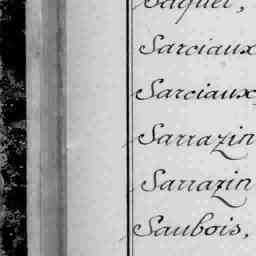 Sarciaux
Sarciaux,
Sarrazin
Sarrazin
Saubois,